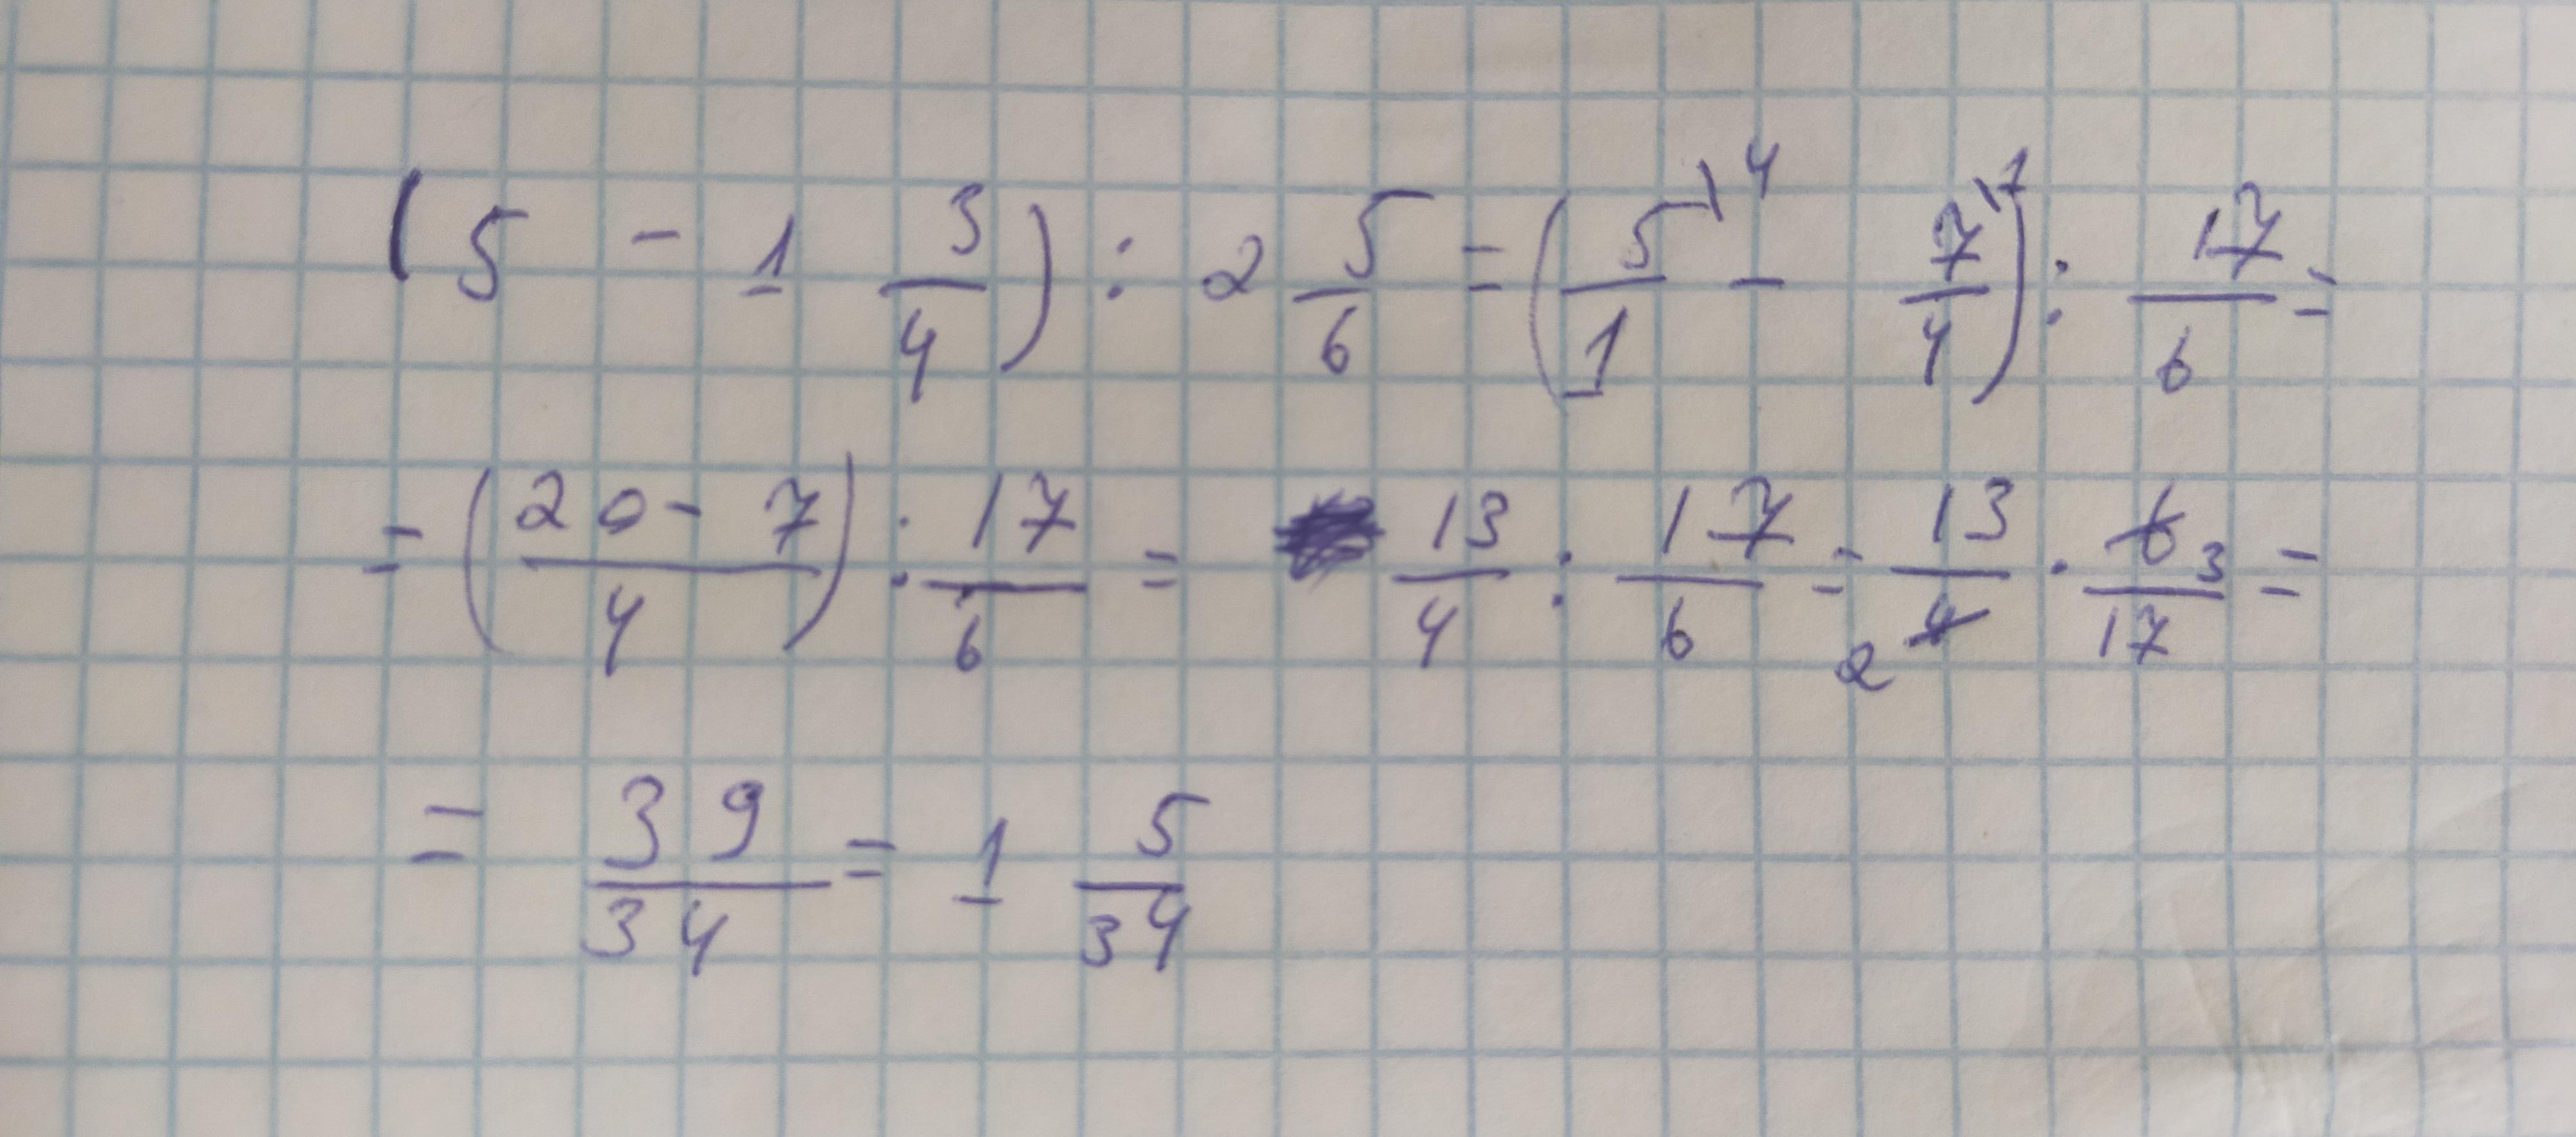 (5 - 1 3/4) : 2 5/6 = (5/1 \4 - 7/4 \1) : 17/6 =
= (20 - 7 / 4) : 17/6 = 13/4 : 17/6 = 13/4 2 · 6/17 3 =
= 39/34 = 1 5/34